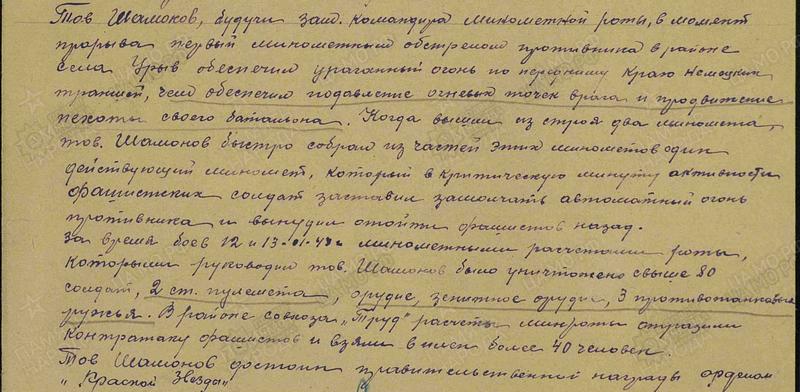 Тов Шамонов, будучи зам. командира минометной роты, в момент
прорыва первый минометным обстрелом противника в районе
села Урыв обеспечил ураганный огонь по переднему краю немецких
траншей, чем обеспечил подавление огневых точек врага и продвижение
пехоты своего батальона. Когда вышли из строя два миномета,
тов. Шамонов быстро собрал из частей этих минометов один
действующий миномет, который в критическую минуту активности
фашистских солдат заставил замолчать автоматный огонь
противника и вынудил отойти фашистов назад.
За время боев 12 и 13-01-43г. минометными расчетами роты,
которыми руководил тов. Шамонов было уничтожено свыше 80
солдат, 2 ст. пулемета, орудие, зенитное орудие, 3 противотанковых
ружья. В районе совхоза „Труд" расчеты минроты отразили
контратаку фашистов и взяли в плен более 40 человек.
Тов Шамонов достоин правительственной награды орденом
„Красной Звезды"